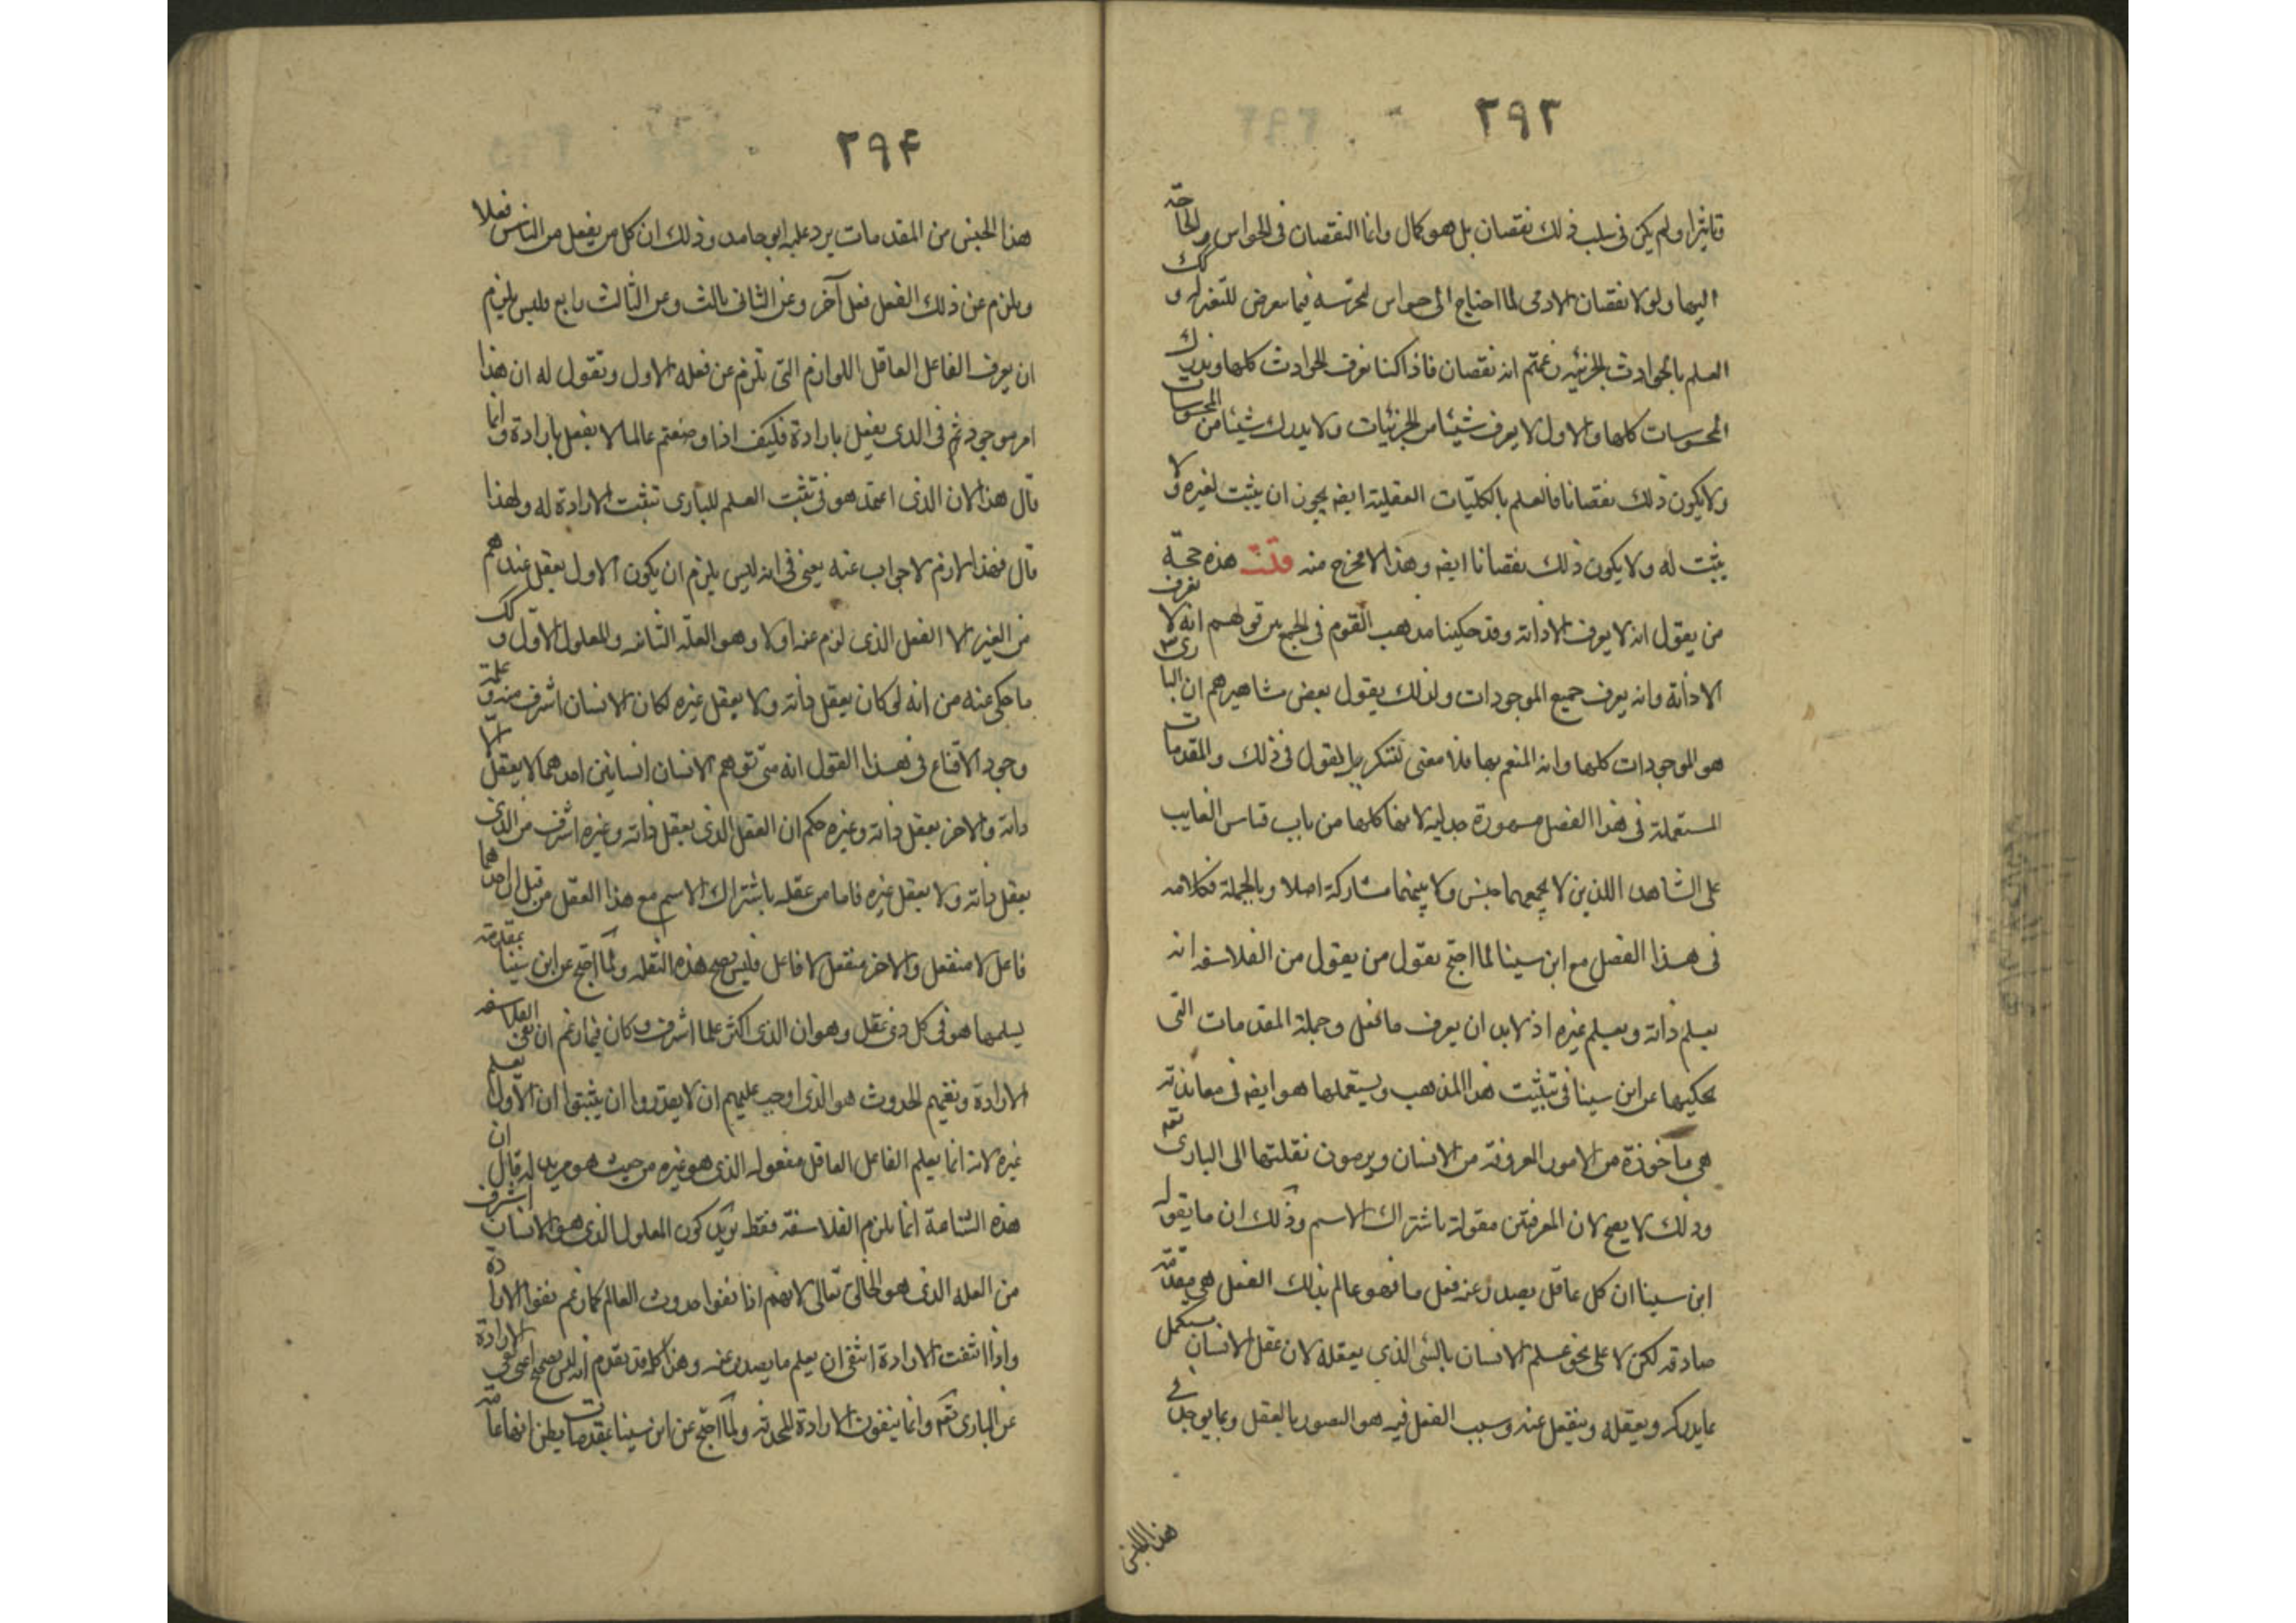 ٢٩٣
تأثيرا ولم يكن فى سلب ذلك نقصان بل هو كمال وانما النقصان فى الحواس والحاجة
اليها ولولا نقصان الادمى لما احتاج الى حواس لتحرسه فيما يتعرض للتغير به وكك
العلم بالحوادث الجزئيه زعمتم انه نقصان فاذا كنا نعرف الحوادث كلها وندرك
المحسوسات كلها والاول لا يعرف شيئا من الجزئيات ولا يدرك شيئا من المحسوسات
ولا يكون ذلك نقصانا فالعلم بالكليّات العقلية ايضا يجوز ان يثبت لغيره ولا
يثبت له ولا يكون ذلك نقصانا ايضا وهذا لا مخرج منه قلت هذه حجة
من يقول انه لا يعرف الا ذاته وقد حكينا مذهب القوم فى الجمع بين قولهم انه لا يعرف
الا ذاته وانه يعرف جميع الموجودات ولذلك يقول بعض مشاهيرهم ان البارى
هو الموجودات كلها وانه المنعم بها فلا معنى لتكرير القول فى ذلك والمقدمات
المستعملة فى هذا الفصل مشهورة جدلية لانها كلها من باب قياس الغايب
على الشاهد اللذين لا يجمعهما جنس ولا بينهما مشاركة اصلا وبالجملة فكلامه
فى هذا الفصل مع ابن سينا لما احتج بقول من يقول من الفلاسفه انه
يعلم ذاته ويعلم غيره اذ لا بد ان يعرف ما فعل وجملة المقدمات التى
يحكيها عن ابن سينا فى تثبيت هذا المذهب ويستعملها هو ايضا فى معاندته
هى مأخوذة من الامور المعروفة من الانسان ويرومون نقلتها الى البارى تعه
وذلك لا يصح لان المعرفتين مقولة باشتراك الاسم وذلك ان ما يقوله
ابن سينا ان كل عاقل يصدر عنه فعل ما فهو عالم بذلك الفعل هى مقدمة
صادقة لكن لا على نحو علم الانسان بالشئ الذى يعقله لان عقل الانسان يستكمل
بما يدركه ويعقله وينفعل عنه وسبب الفعل فيه هو التصور بالعقل وبما يوجد فى
هذا الجنس
٢٩۴
هذا الجنس من المقدمات يرد عليه ابو حامد وذلك ان كل من يفعل من الناس فعلا
ويلزم عن ذلك الفعل فعل آخر وعن الثانى ثالث وعن الثالث رابع فليس يلزم
ان يعرف الفاعل العاقل اللوازم التى تلزم عن فعله الاول ونقول له ان هذا
امر موجود ثم فى الذى يفعل بارادة فكيف اذا وضعتم عالما لا يفعل بارادة وانما
قال هذا لان الذى اعتمد هو فى تثبت العلم للبارى تثبت الارادة له ولهذا
قال فهذا لازم لا جواب عنه يعنى فى انه ليس يلزم ان يكون الاول يعقل عندهم
من الغير الا الفعل الذى لزم عنه اولا وهو العلّة الثانيه والمعلول الاوّل وكك
ما حكى عنه من انه لو كان يعقل ذاته ولا يعقل غيره لكان الانسان اشرف منه وعلة
وجود الاقناع فى هذا القول انه متى توهم الانسان انسانين احدهما لا يعقل الّا
ذاته والاخر يعقل ذاته وغيره حكم ان العقل الذى يعقل ذاته وغيره اشرف من الذى
يعقل ذاته ولا يعقل غيره فاما من عقله باشتراك الاسم مع هذا العقل من قبل ان احدهما
فاعل لا منفعل والاخر منفعل لا فاعل فليس يصح هذه النقله ولما احتج عن ابن سينا بمقدمة
يسلمها هو فى كل ذى عقل وهو ان الذى اكثر علما اشرف وكان فيما زعم ان نفى الفلاسفه
الارادة ونفيهم الحدوث هو الذى اوجب عليهم ان لا يقدروا ان يثبتوا ان الاول يعلم
غيره لانه انما يعلم الفاعل العاقل مفعوله الذى هو غيره من حيث هو مريد له قال ان
هذه الشناعة انما يلزم الفلاسفة فقط يريد كون المعلول الذى هو الانسان اشرف
من العله الذى هو الخالق تعالى لانهم اذا نفوا حدوث العالم كما زعم نفوا الارادة
واذا انتفت الارادة انتفى ان يعلم ما يصدر عنه وهذا كله قد تقدم انه ليس بصحيح اعنى نفى الارادة
عن البارى تعه وانما ينفون الارادة المحدثة ولما احتج عن ابن سينا بمقدمات يظن انها عامة